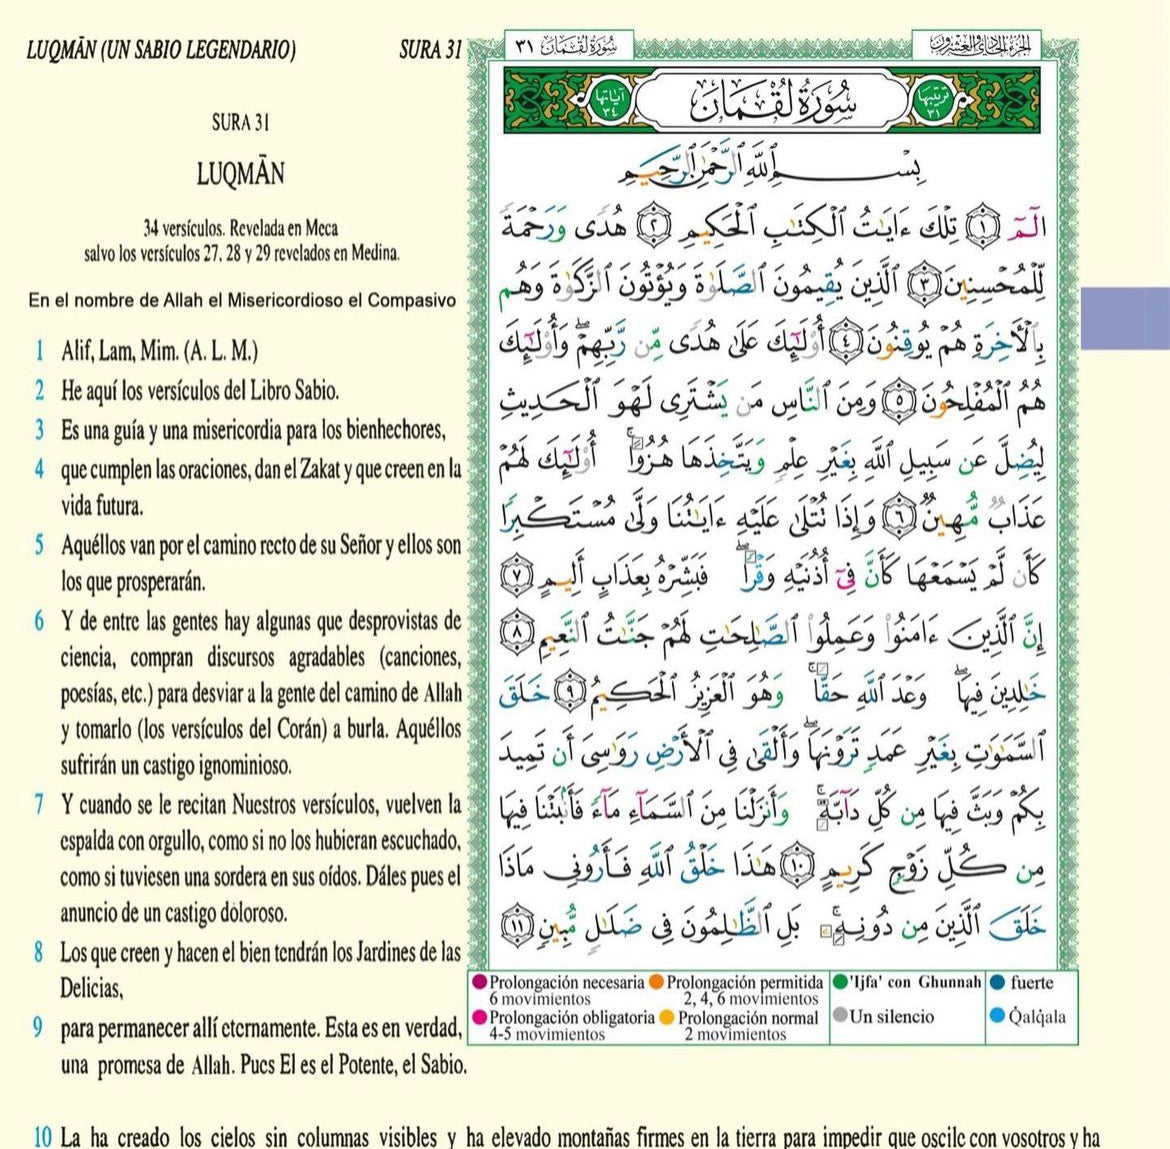 LUQMĀN (UN SABIO LEGENDARIO)
SURA 31
SURA 31
LUQMĀN
34 versículos. Revelada en Meca
salvo los versículos 27, 28 y 29 revelados en Medina.
En el nombre de Allah el Misericordioso el Compasivo
1 Alif, Lam, Mim. (A. L. M.)
2 He aquí los versículos del Libro Sabio.
3 Es una guía y una misericordia para los bienhechores,
4 que cumplen las oraciones, dan el Zakat y que creen en la
vida futura.
5 Aquéllos van por el camino recto de su Señor y ellos son
los que prosperarán.
6 Y de entre las gentes hay algunas que desprovistas de
ciencia, compran discursos agradables (canciones,
poesías, etc.) para desviar a la gente del camino de Allah
y tomarlo (los versículos del Corán) a burla. Aquéllos
sufrirán un castigo ignominioso.
7 Y cuando se le recitan Nuestros versículos, vuelven la
espalda con orgullo, como si no los hubieran escuchado,
como si tuviesen una sordera en sus oídos. Dáles pues el
anuncio de un castigo doloroso.
8 Los que creen y hacen el bien tendrán los Jardines de las
Delicias,
9 para permanecer allí eternamente. Esta es en verdad,
una promesa de Allah. Pues El es el Potente, el Sabio.
10 La ha creado los cielos sin columnas visibles y ha elevado montañas firmes en la tierra para impedir que oscile con vosotros y ha
الجزء الحادي والعشرون
سورة لقمان ٣١
ترتيبها ٣١
سُورَةُ لُقْمَانَ
آياتها ٣٤
بِسْمِ اللَّهِ الرَّحْمَٰنِ الرَّحِيمِ
الٓمٓ ١ تِلْكَ ءَايَٰتُ ٱلْكِتَٰبِ ٱلْحَكِيمِ ٢ هُدًى وَرَحْمَةً
لِّلْمُحْسِنِينَ ٣ ٱلَّذِينَ يُقِيمُونَ ٱلصَّلَوٰةَ وَيُؤْتُونَ ٱلزَّكَوٰةَ وَهُم
بِٱلْأَخِرَةِ هُمْ يُوقِنُونَ ٤ أُو۟لَٰٓئِكَ عَلَىٰ هُدًى مِّن رَّبِّهِمْ ۖ وَأُو۟لَٰٓئِكَ
هُمُ ٱلْمُفْلِحُونَ ٥ وَمِنَ ٱلنَّاسِ مَن يَشْتَرِى لَهْوَ ٱلْحَدِيثِ
لِيُضِلَّ عَن سَبِيلِ ٱللَّهِ بِغَيْرِ عِلْمٍ وَيَتَّخِذَهَا هُزُوًا ۚ أُو۟لَٰٓئِكَ لَهُمْ
عَذَابٌ مُّهِينٌ ٦ وَإِذَا تُتْلَىٰ عَلَيْهِ ءَايَٰتُنَا وَلَّىٰ مُسْتَكْبِرًا
كَأَن لَّمْ يَسْمَعْهَا كَأَنَّ فِىٓ أُذُنَيْهِ وَقْرًا ۖ فَبَشِّرْهُ بِعَذَابٍ أَلِيمٍ ٧
إِنَّ ٱلَّذِينَ ءَامَنُوا۟ وَعَمِلُوا۟ ٱلصَّٰلِحَٰتِ لَهُمْ جَنَّٰتُ ٱلنَّعِيمِ ٨
خَٰلِدِينَ فِيهَا ۖ وَعْدَ ٱللَّهِ حَقًّا ۚ وَهُوَ ٱلْعَزِيزُ ٱلْحَكِيمُ ٩ خَلَقَ
ٱلسَّمَٰوَٰتِ بِغَيْرِ عَمَدٍ تَرَوْنَهَا ۖ وَأَلْقَىٰ فِى ٱلْأَرْضِ رَوَٰسِىَ أَن تَمِيدَ
بِكُمْ وَبَثَّ فِيهَا مِن كُلِّ دَآبَّةٍ ۚ وَأَنزَلْنَا مِنَ ٱلسَّمَآءِ مَآءً فَأَنۢبَتْنَا فِيهَا
مِن كُلِّ زَوْجٍ كَرِيمٍ ١٠ هَٰذَا خَلْقُ ٱللَّهِ فَأَرُونِى مَاذَا
خَلَقَ ٱلَّذِينَ مِن دُونِهِۦ ۚ بَلِ ٱلظَّٰلِمُونَ فِى ضَلَٰلٍ مُّبِينٍ ١١
Prolongación necesaria
6 movimientos
Prolongación permitida
2, 4, 6 movimientos
'Ijfa' con Ghunnah
fuerte
Prolongación obligatoria
4-5 movimientos
Prolongación normal
2 movimientos
Un silencio
Qalqala